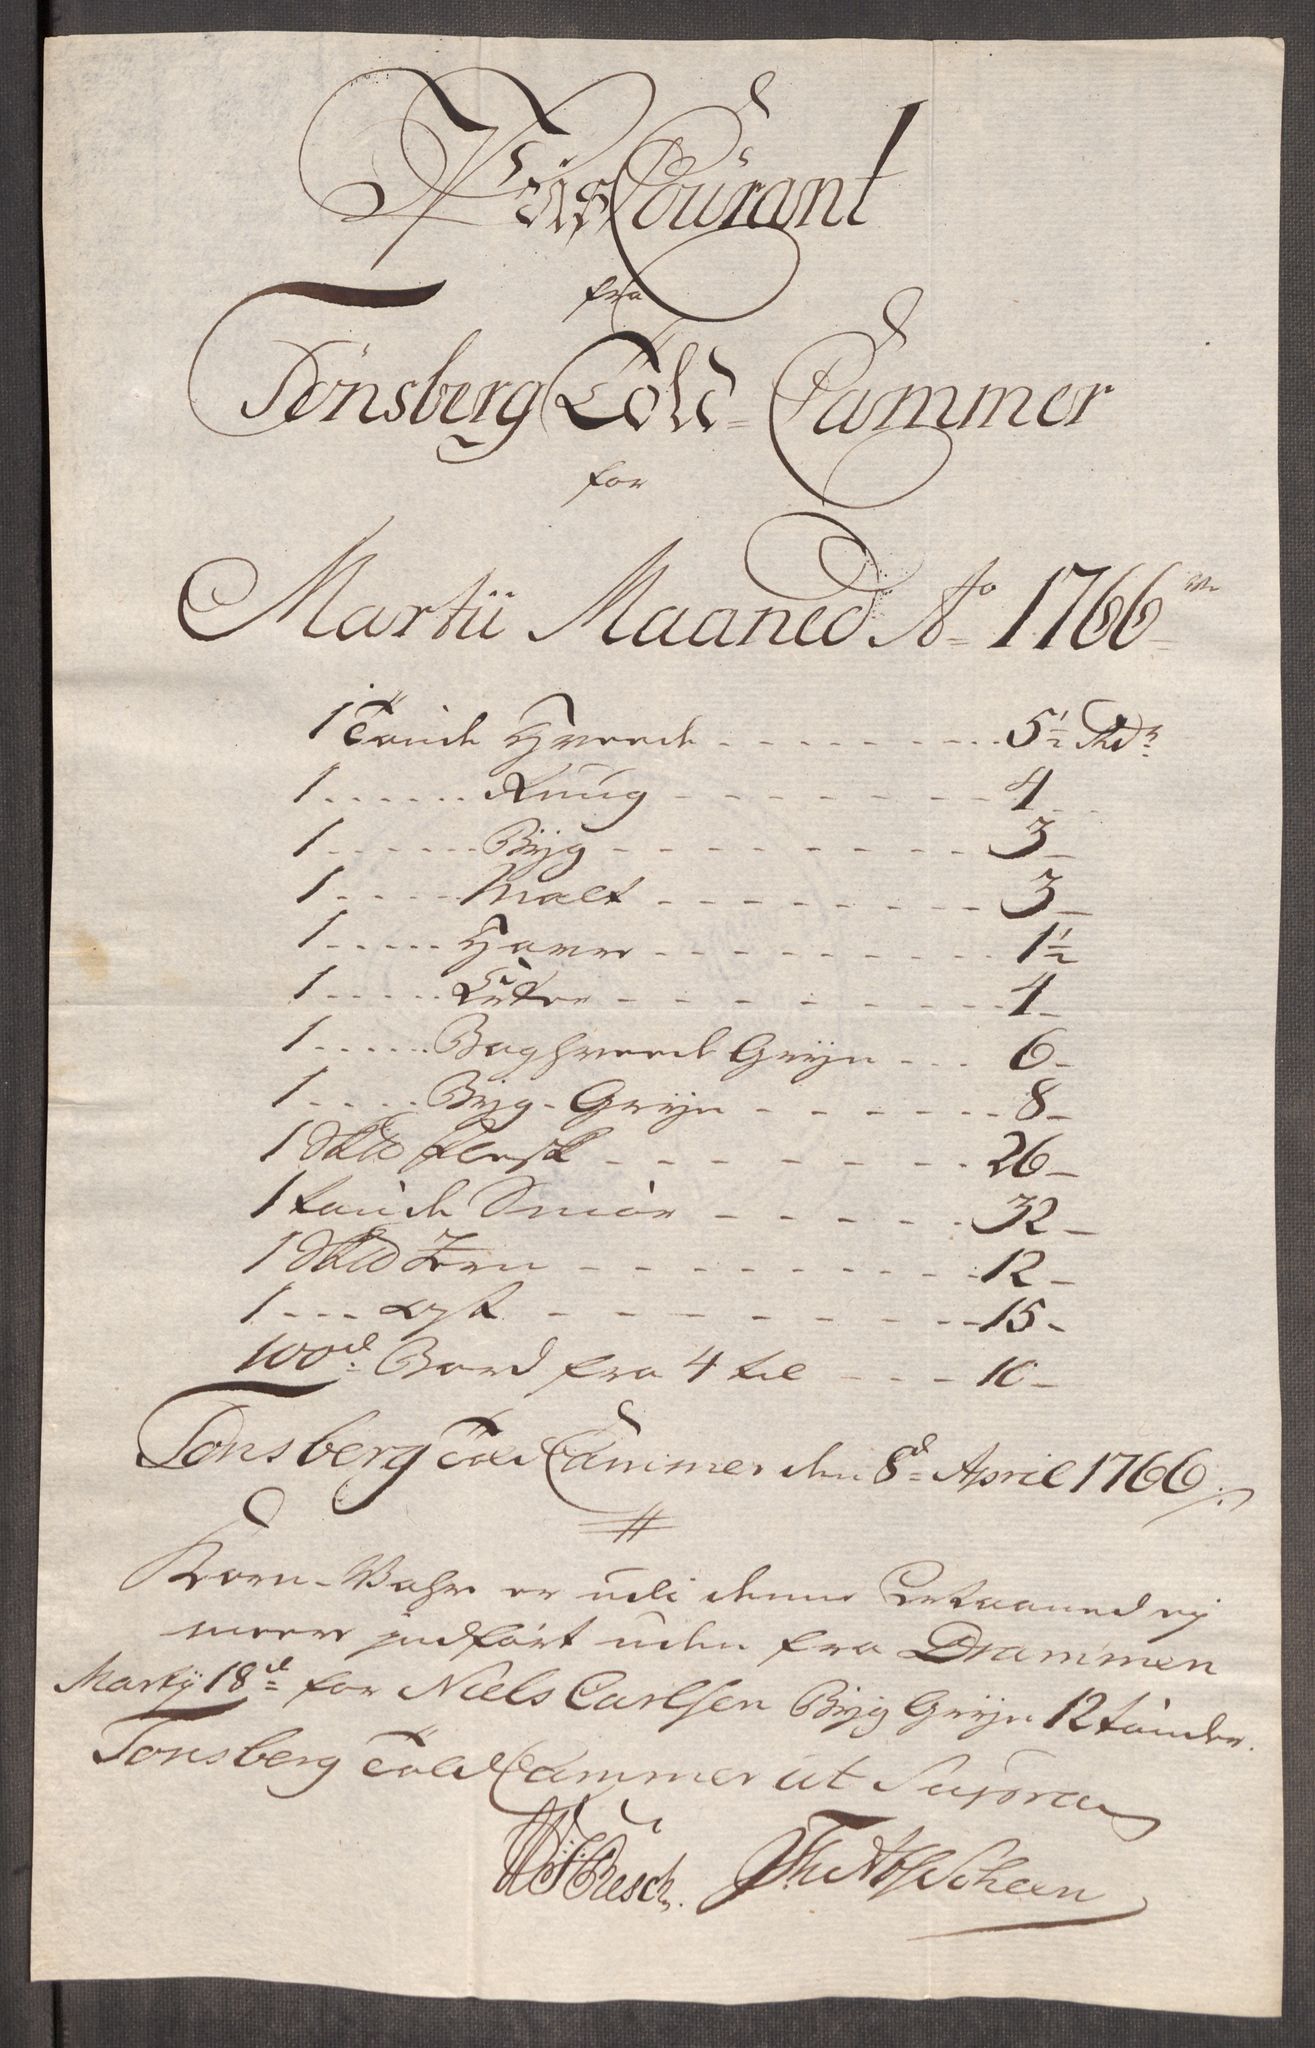 Priis Courant
fra
Tönsberg Told-Cammer
for
Martii Maaned Ao 1766
1 Tönde Hvede 5½ Rdr
1 Ruug 4
1 Byg 3
1 Malt 3
1 Havre 1½
1 Erter 4
1 Boghvede Gryn 6
1 Byg-Gryn 8
1 Sk℔ Flesk 26
1 tönde Smör 32
1 Sk℔ Jern 12
1 15
100d Bord fra 4 til 10
Tönsberg Told Cammer den 8d April 1766
Korn-Vahre er udi denne Maaned ej
meere indfört uden fra Drammen
Martij 18d for Niels Carlsen Byg Gryn 12 tönder.
Tönsberg Told Cammer ut Supra
Resch. Scheen